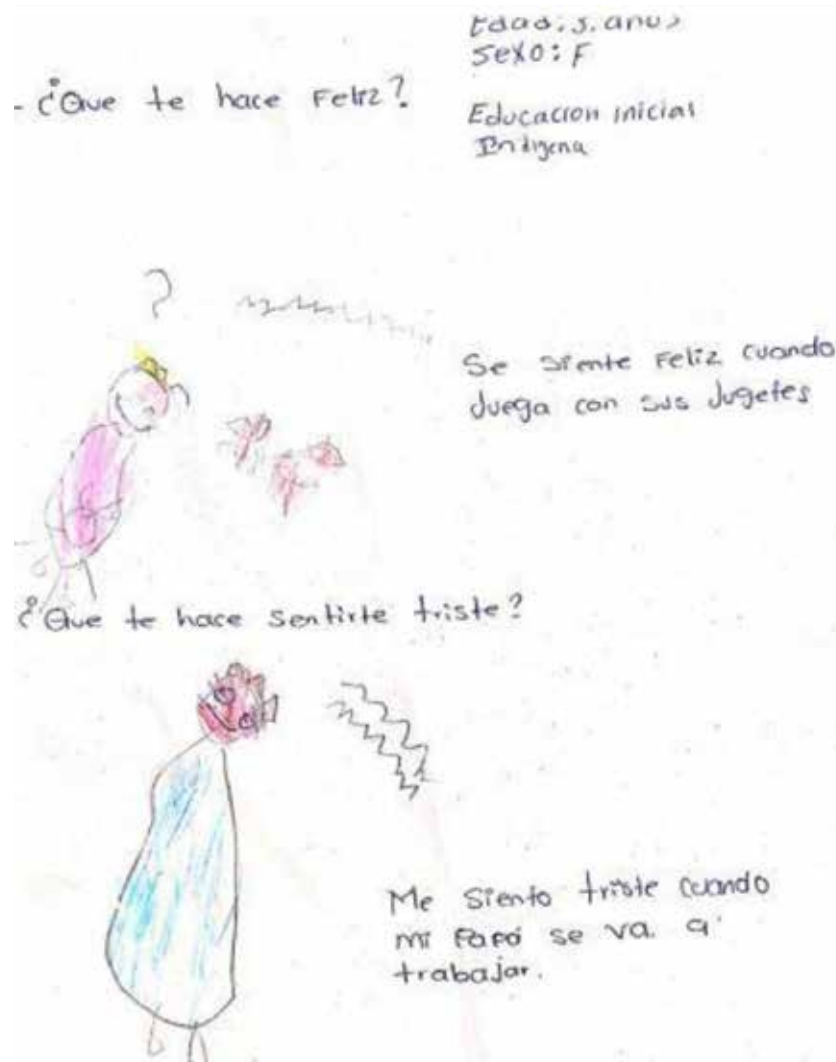 Edad: 5. anos
sexo: F
- ¿Que te hace Feliz?
Educacion inicial
Indigena
?
Se siente Feliz cuando
Juega con sus Jugetes
¿Que te hace sentirte triste?
Me siento triste cuando
mi Papá se va a
trabajar.